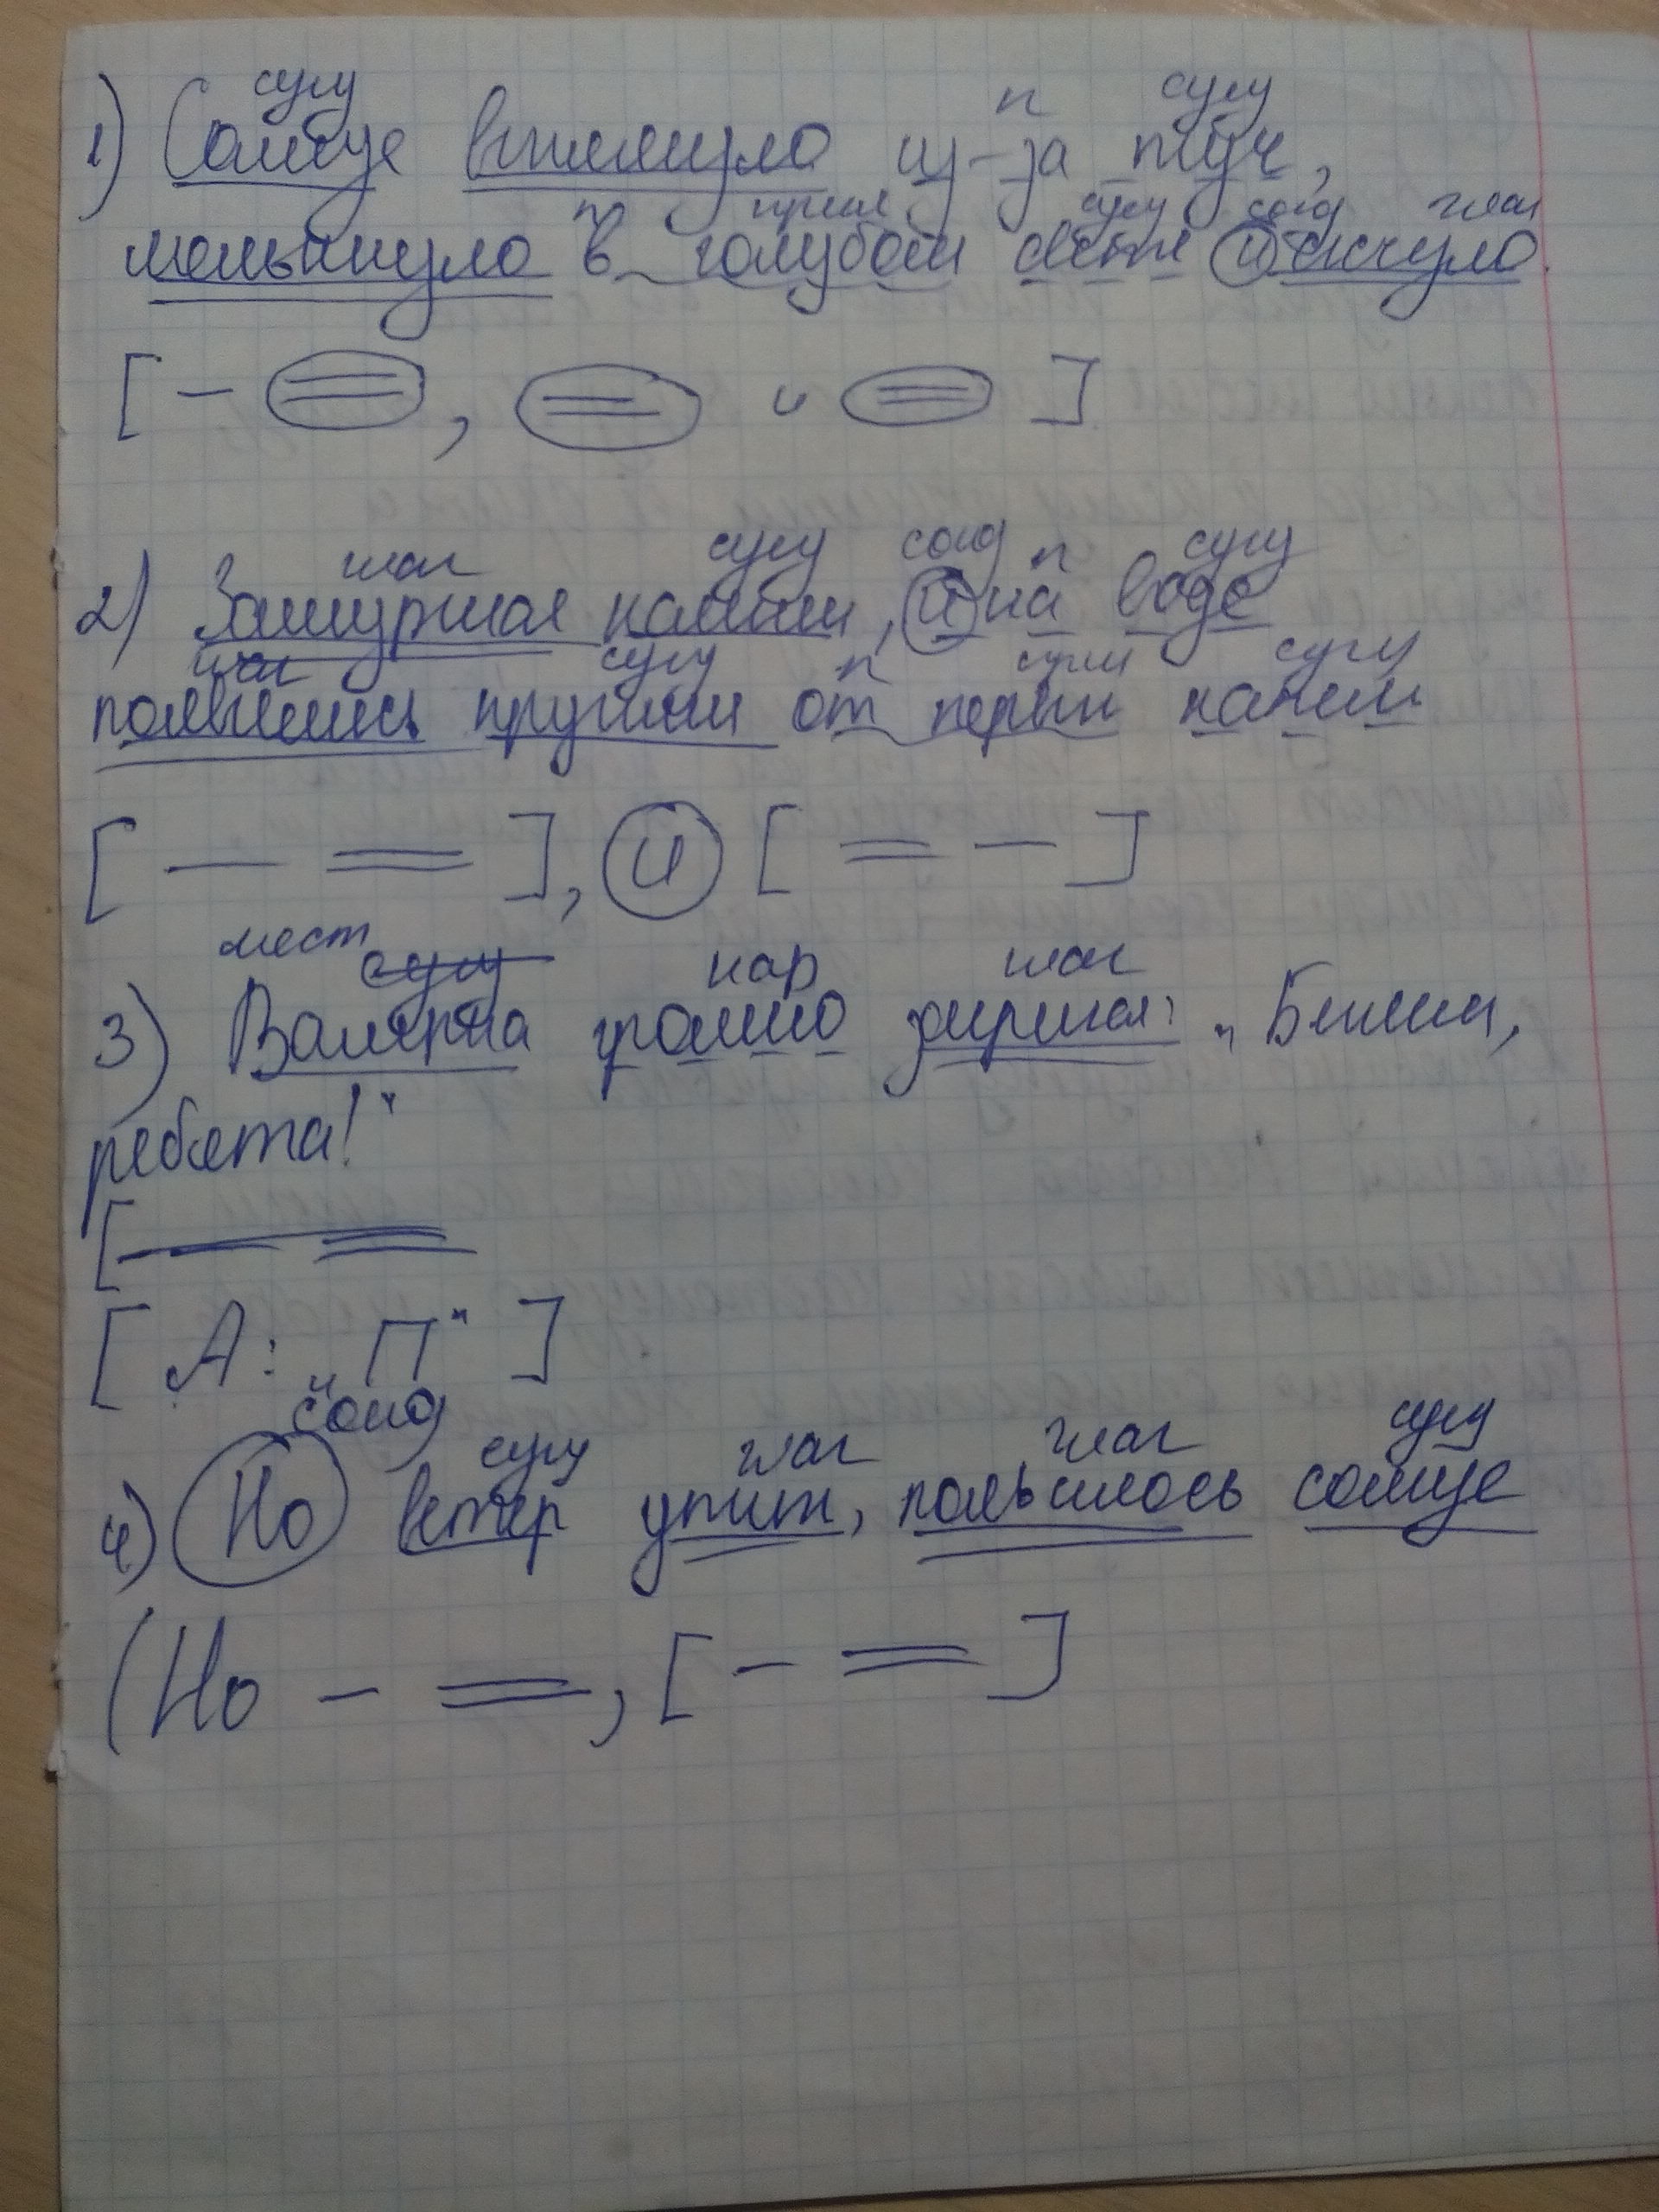 сущ п сущ
1) Солнце выглянуло из-за туч,
п прил сущ союз глаг
мелькнуло в голубом свете и
[ – = , = и = ]
глаг сущ союз п сущ
2) камыш, и на воде
глаг сущ п сущ
появились круги от капель
[ – = ], и [ = – ]
мест сущ нар глаг
3) Валерка громко „
ребята!“
[ – =
[ А: „П“ ]
союз сущ глаг глаг сущ
4) Но ветер утих, появилось солнце
(Но – = , [ – = ]